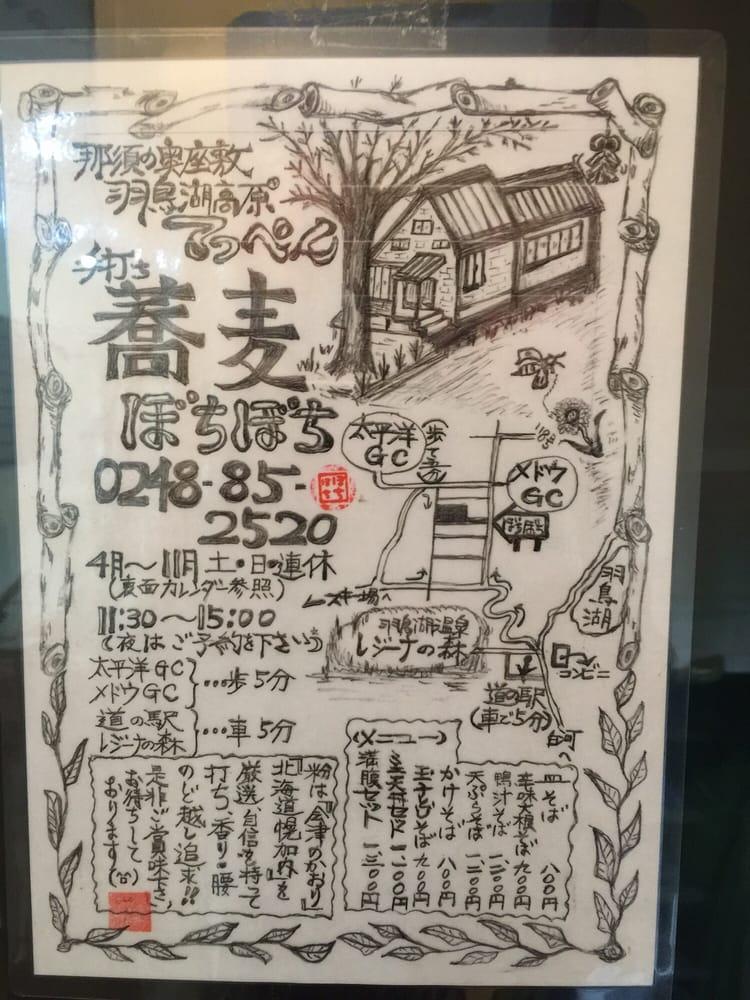 那須の奥座敷
羽鳥湖高原
てっぺん
手打ち
蕎麦
ぼちぼち
0248-85-
2520
4月〜11月 土・日・の連休
(裏面カレンダー参照)
11:30〜15:00
(夜はご予約を下さい)
太平洋GC
メドウGC
…歩5分
道の駅
レジーナの森
…車5分
太平洋
GC
メドウ
GC
ぼちぼち
スキー場へ
羽鳥湖温泉
レジーナの森
羽鳥湖
コンビニ
道の駅
(車で5分)
白河へ
粉は『会津のかおり』
『北海道幌加内』を
厳選、自信を持って
打ち、香り・腰
のど越し追求!!
是非ご賞味下さい、
お待ちして
おります
(メニュー)
皿そば 八〇〇円
辛味大根そば 九〇〇円
鴨汁そば 一、二〇〇円
天ぷらそば 一、二〇〇円
かけそば 八〇〇円
玉子とじそば 九〇〇円
ミニ天丼セット 一、二〇〇円
満腹セット 一、三〇〇円